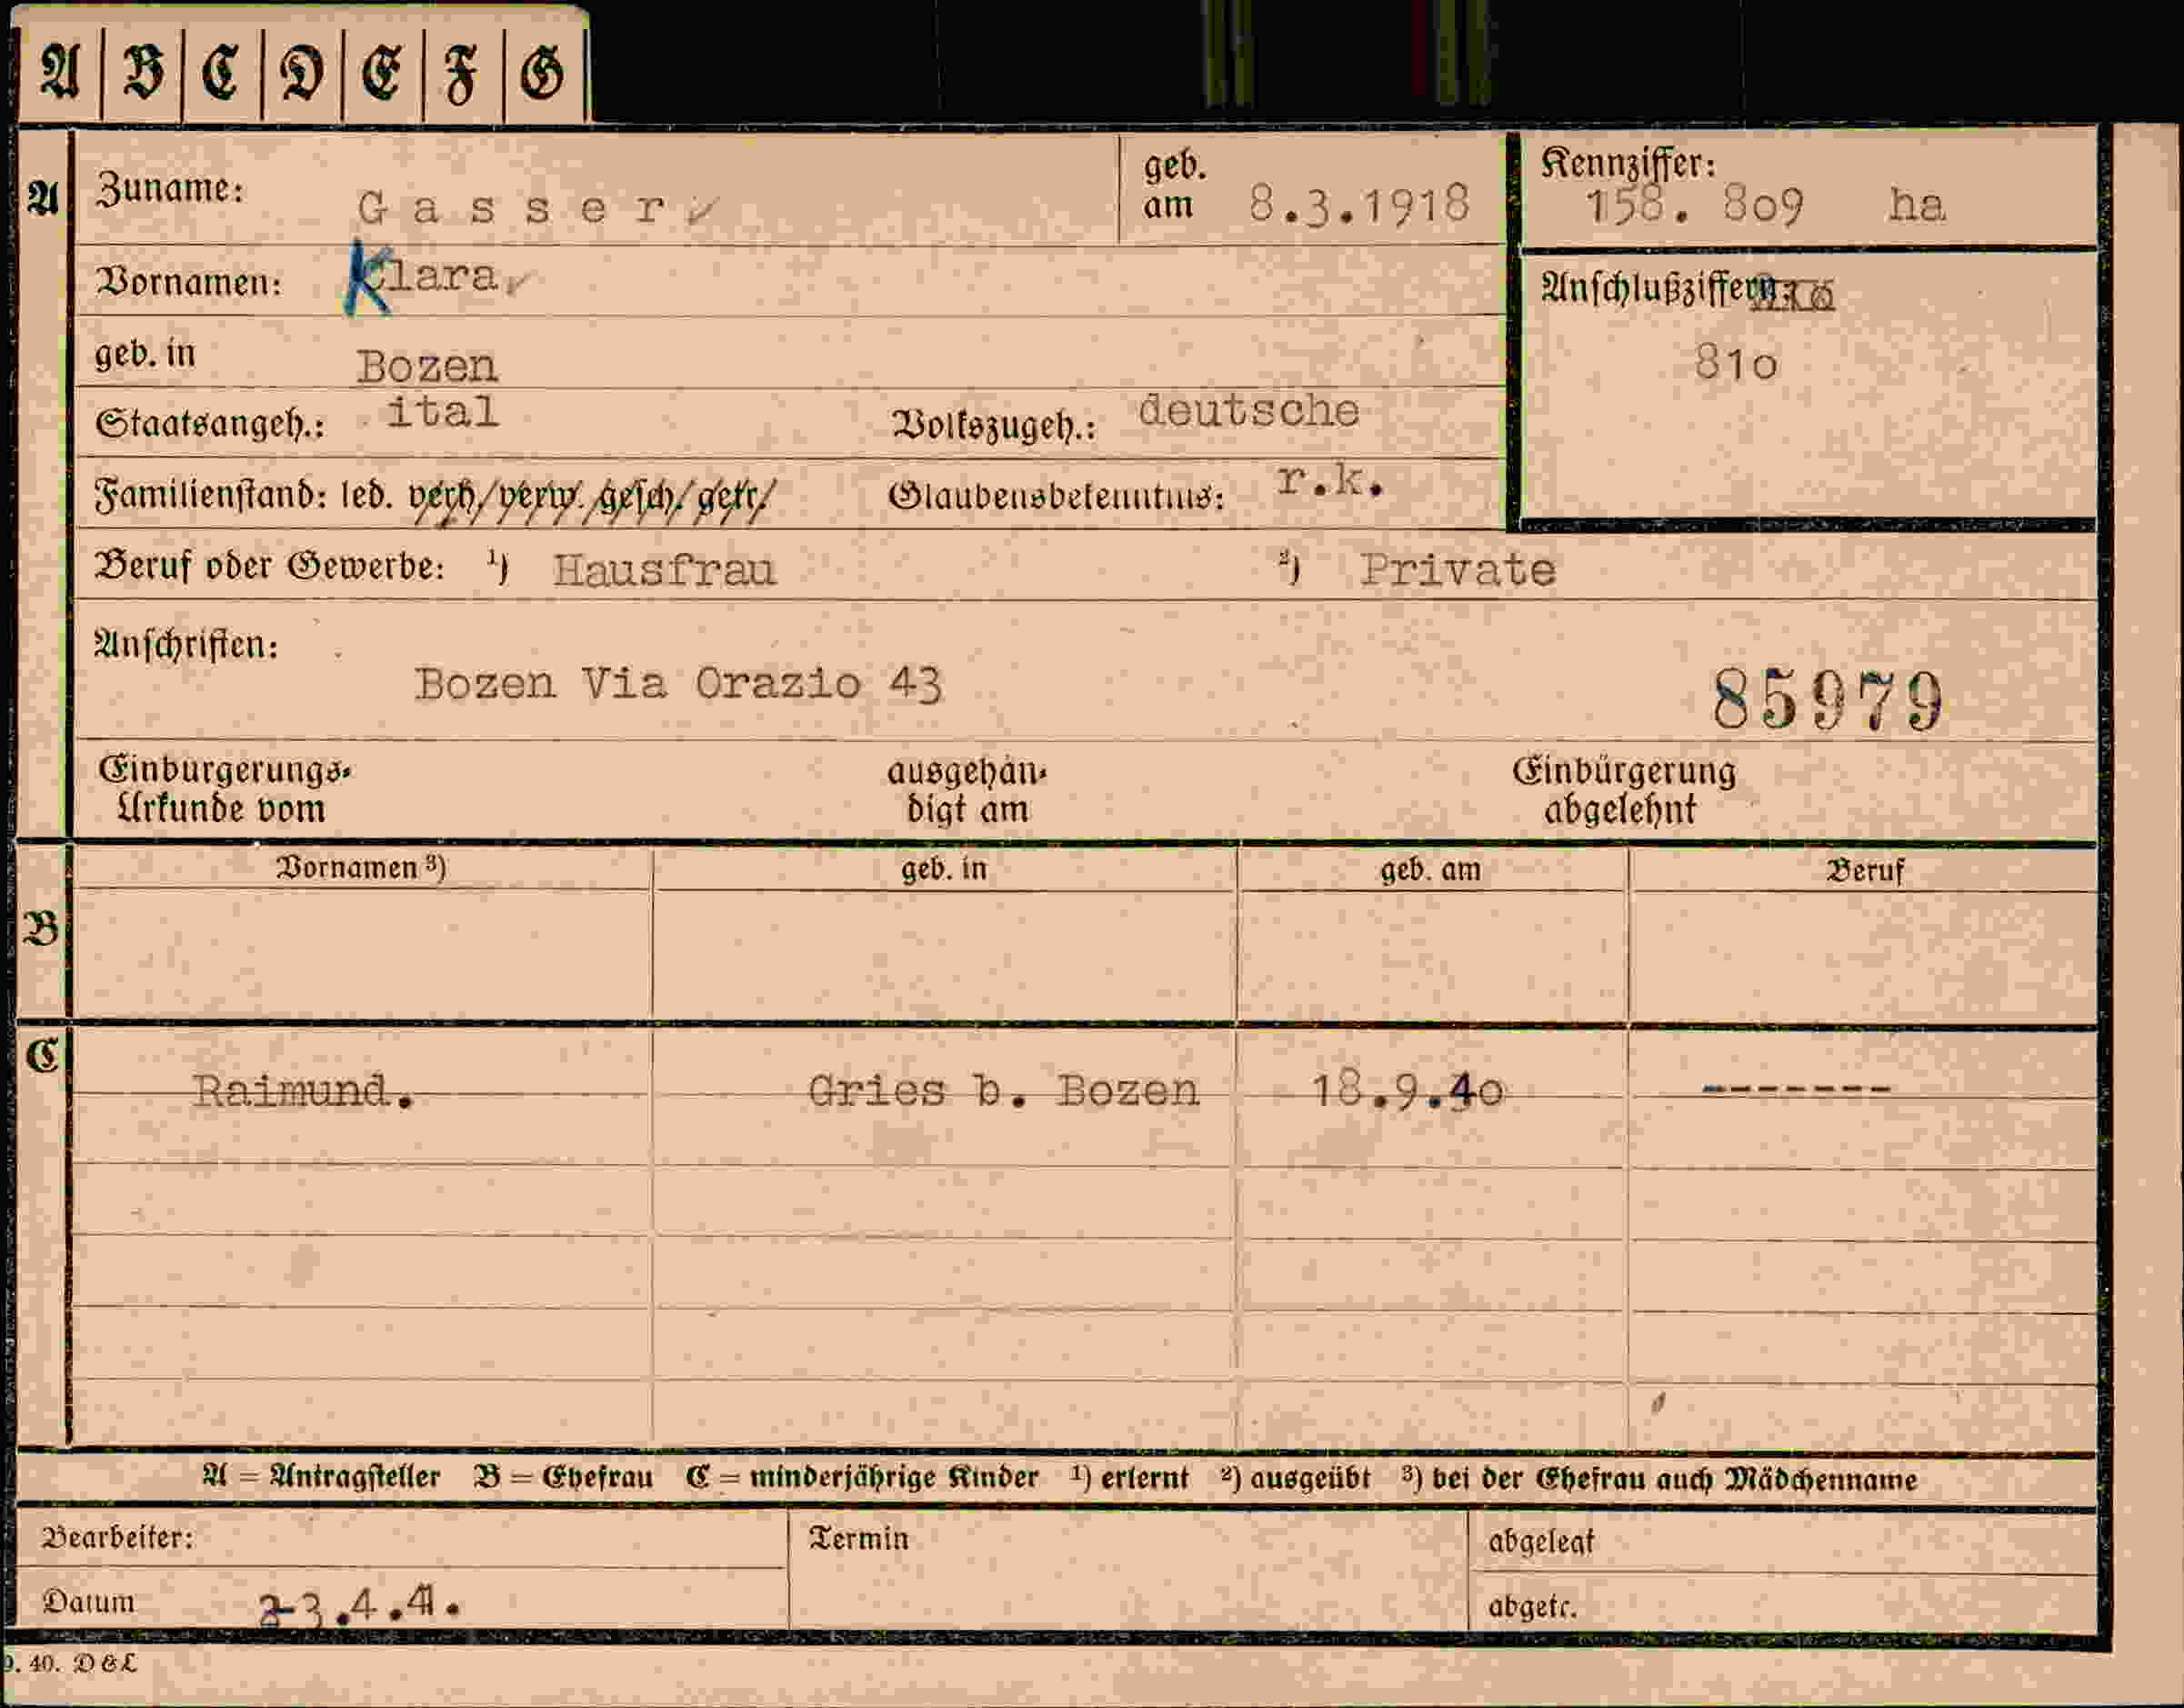 A B C D E F G
A Zuname: Gasser geb. am 8.3.1918 Kennziffer: 158. 809 ha
Vornamen: Klara Anschlußziffern
geb. in Bozen 810
Staatsangeh.: ital Volkszugeh.: deutsche
Familienstand: led. verh. verw. gesch. getr. Glaubensbekenntnis: r.k.
Beruf oder Gewerbe: ¹) Hausfrau ²) Private
Anschriften:
Bozen Via Orazio 43 85979
Einbürgerungs- ausgehän- Einbürgerung
Urkunde vom digt am abgelehnt
Vornamen ³) geb. in geb. am Beruf
B
C
Raimund. Gries b. Bozen 18.9.40 -------
A = Antragsteller B = Ehefrau C = minderjährige Kinder ¹) erlernt ²) ausgeübt ³) bei der Ehefrau auch Mädchenname
Bearbeiter: Termin abgelegt
Datum 23.4.41. abgetr.
9. 40. D&L